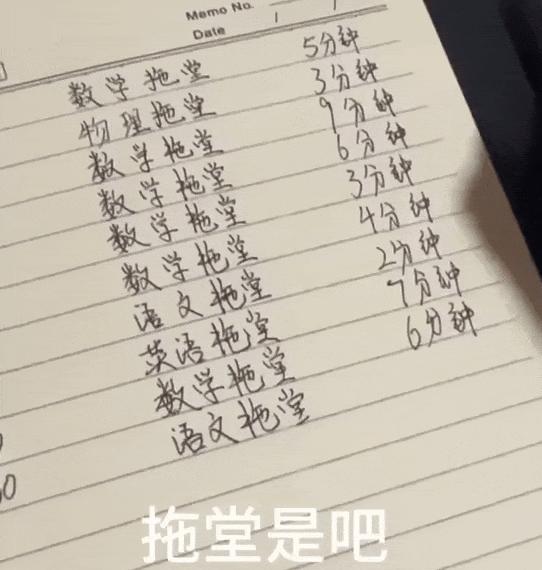 Memo No.
Date / /
数学拖堂 5分钟
物理拖堂 3分钟
数学拖堂 9分钟
数学拖堂 6分钟
数学拖堂 3分钟
数学拖堂 4分钟
语文拖堂 2分钟
英语拖堂 7分钟
数学拖堂 6分钟
语文拖堂
拖堂是吧